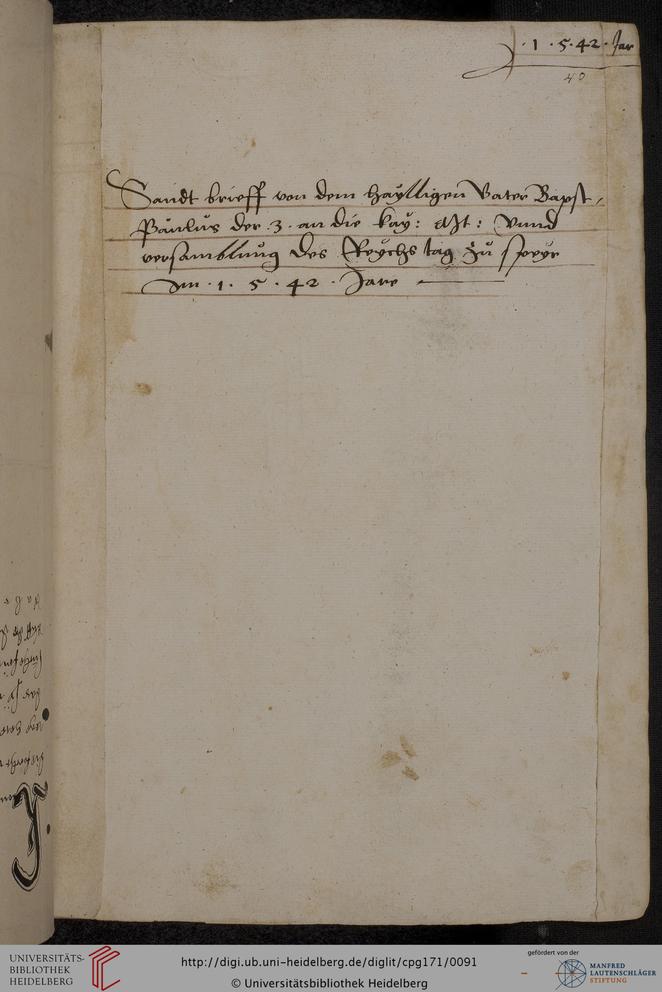 · 1 · 5 · 42 · Jar
40
Sandt brieff von dem haylligen Vater Bapst
Paulus der · 3 · an die kay: Mt: Vnnd
versamblung des Reychs tag zu speyr
Im · 1 · 5 · 42 · Jare
UNIVERSITÄTS-
BIBLIOTHEK
HEIDELBERG
http://digi.ub.uni-heidelberg.de/diglit/cpg171/0091
© Universitätsbibliothek Heidelberg
gefördert von der
MANFRED
LAUTENSCHLÄGER
STIFTUNG